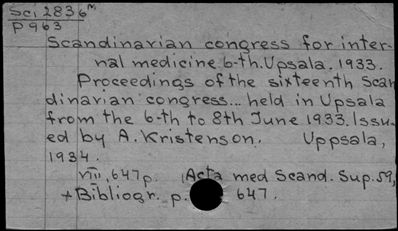 Sci 2836m
P963
Scandinavian congress for inter-
nal medicine. 6-th. Upsala. 1933.
Proceedings of the sixteenth Scan
dinavian congress... held in Upsala
from the 6-th to 8th June 1933. Issu-
ed by A. Kristenson. Uppsala,
1934.
VIII, 647 p. (Acta med Scand. Sup. 59,
+ Bibliogr. p. 647.